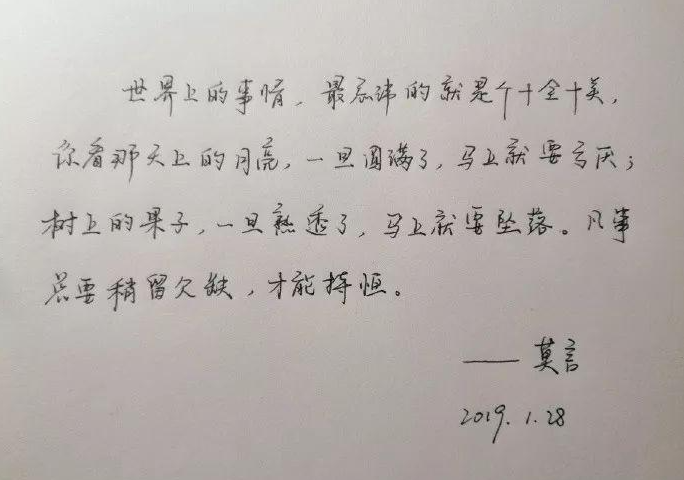 世界上的事情，最忌讳的就是个十全十美，
你看那天上的月亮，一旦圆满了，马上就要亏厌；
树上的果子，一旦熟透了，马上就要坠落。凡事
总要稍留欠缺，才能持恒。
——莫言
2019.1.28